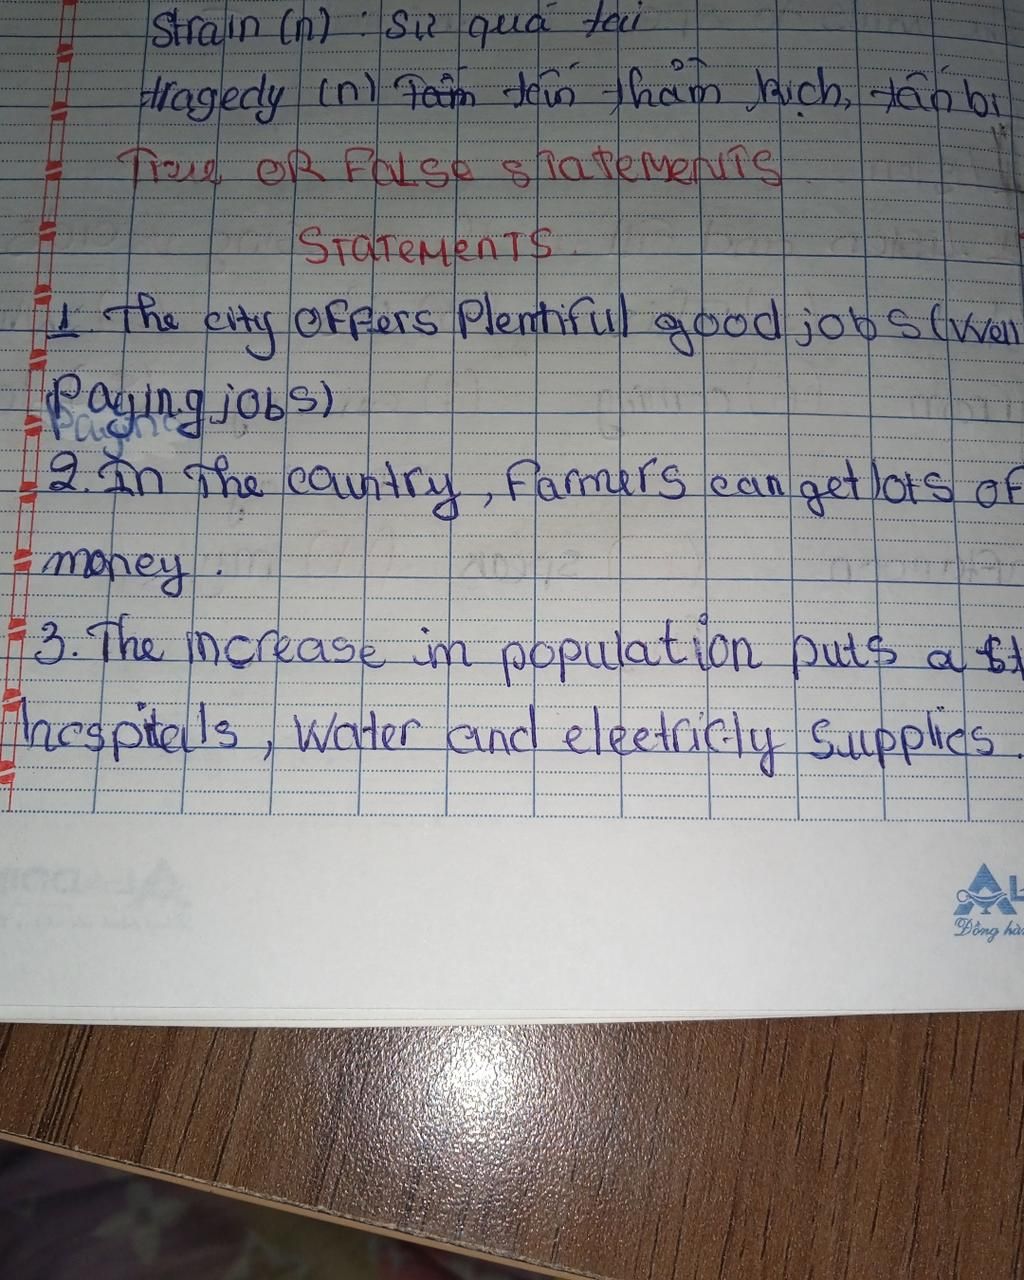 Strain (n) : Sự quá tải
tragedy (n) tấn thảm kịch, tấn bi
True OR False STATEMENTS
STATEMENTS.
1 The city offers Plentiful good jobs (Well
Paying jobs)
2. In The country, Farmers can get lots of
money.
3. The increase in population puts a st
hospitals, Water and electricity supplies.
AL
Đồng hà